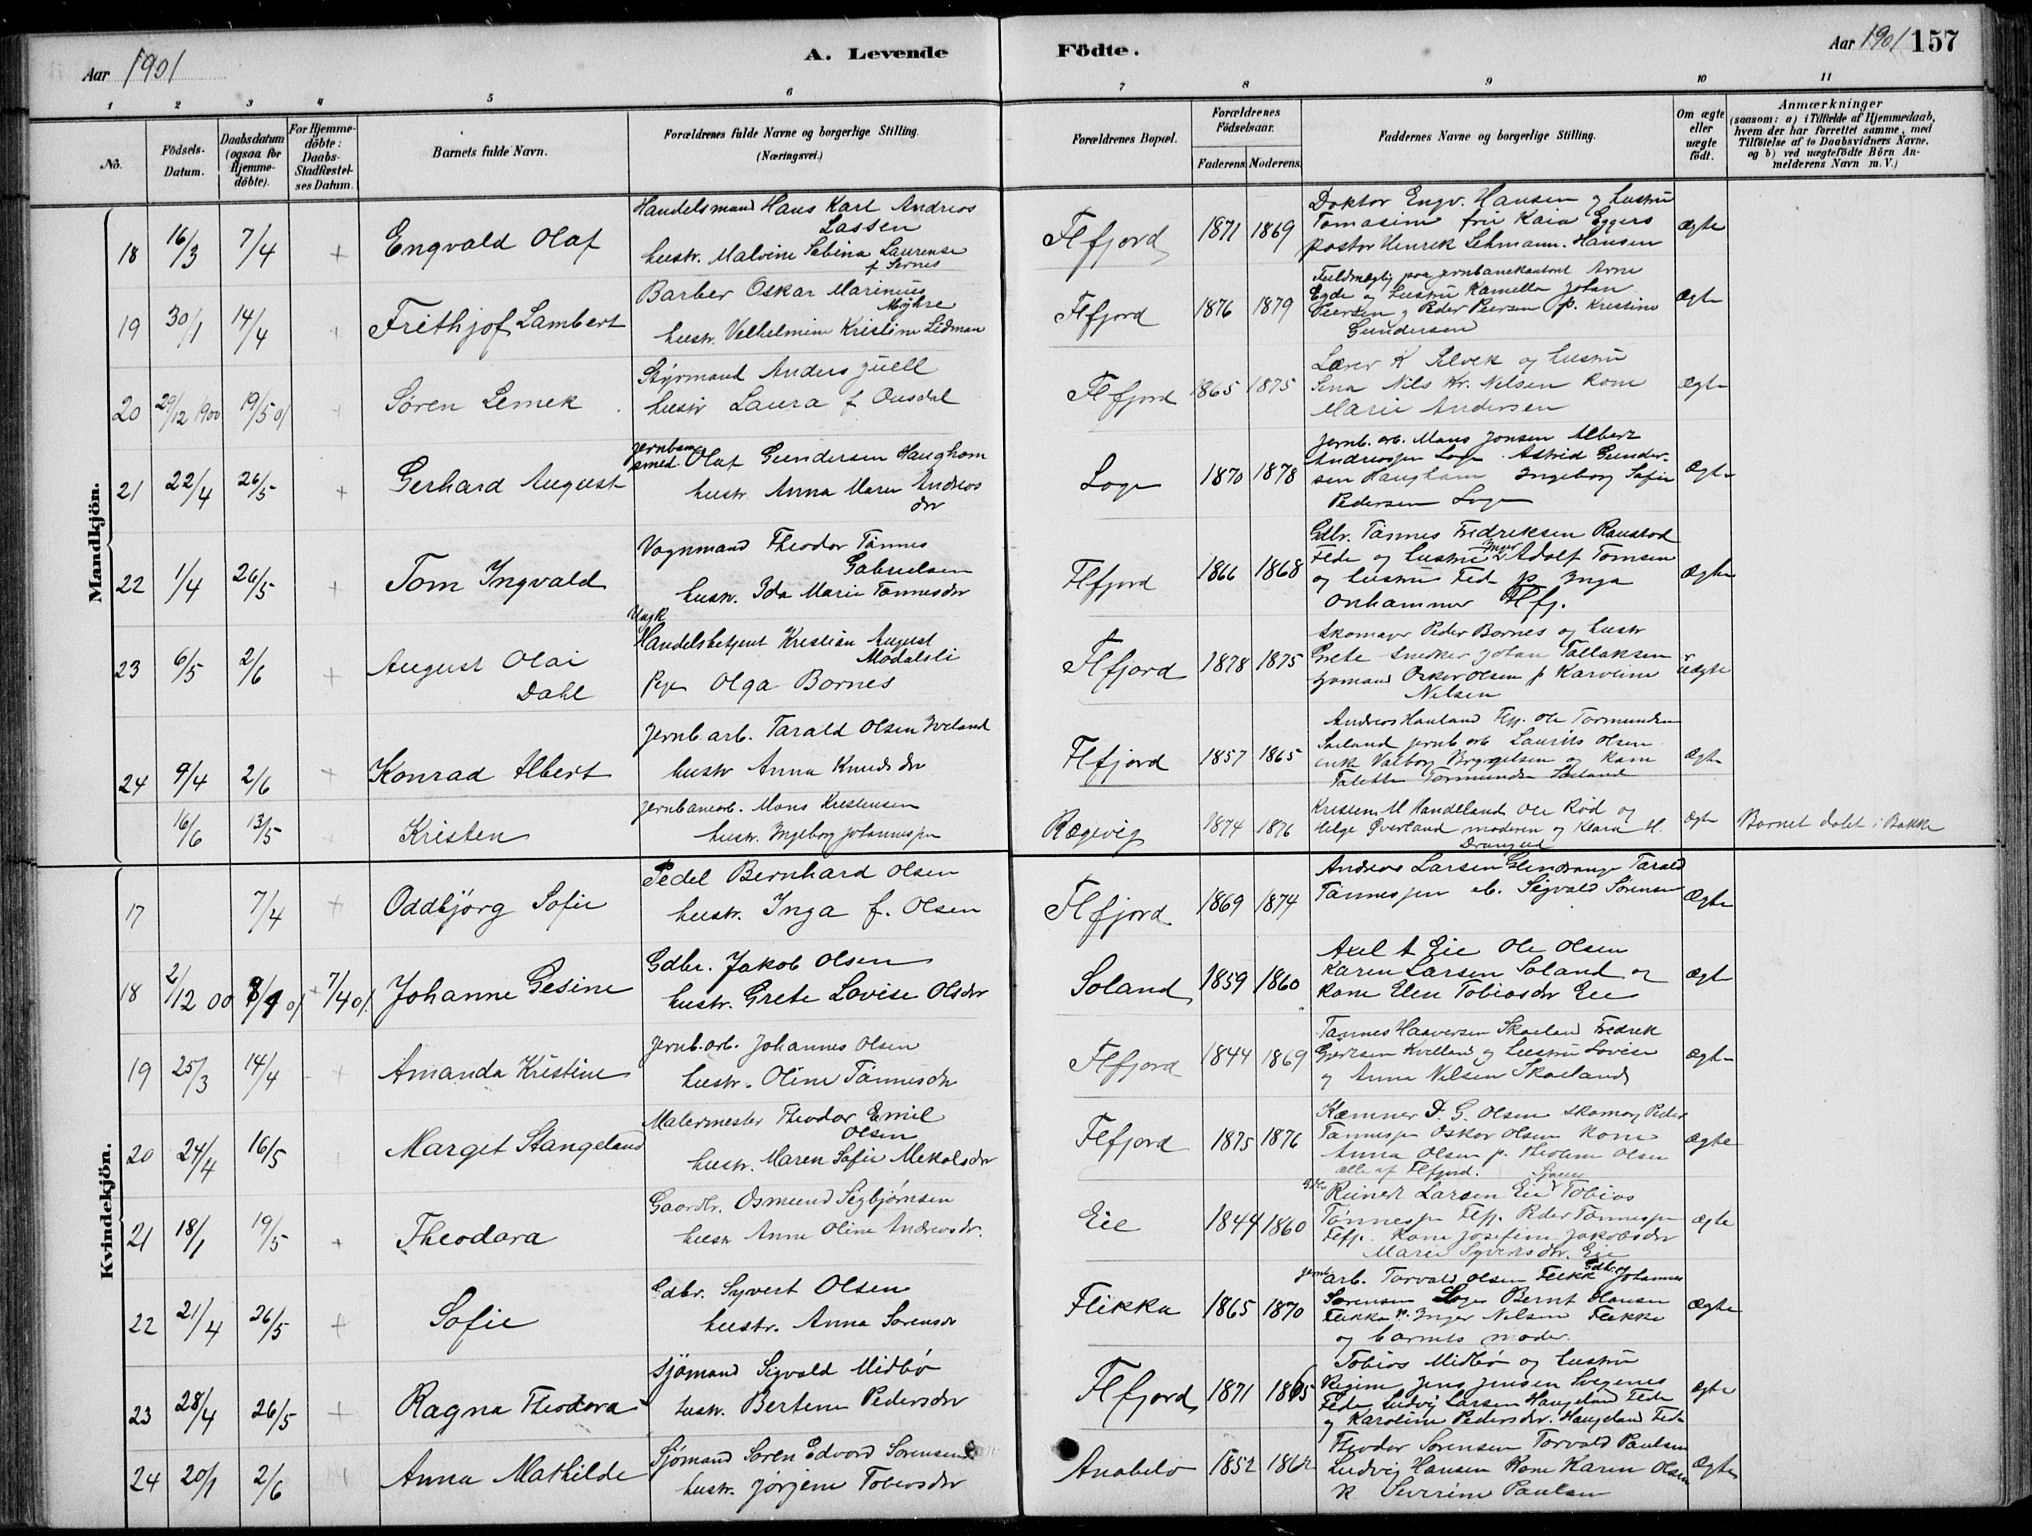 Aar 1901
A. Levende
Födte.
Aar 1901
157
1 2 3 4 5 6 7 8 9 10 11
No.
Födsels-Datum.
Daabsdatum (ogsaa for Hjemme-döbte).
For Hjemme-döbte: Daabs-Stadfæstel-ses Datum.
Barnets fulde Navn.
Forældrenes fulde Navne og borgerlige Stilling. (Næringsvei.)
Forældrenes Bopæl.
Forældrenes Födselsaar.
Faderens. Moderens.
Faddernes Navne og borgerlige Stilling.
Om ægte eller uægte födt.
Anmærkninger
(saasom: a) i Tilfælde af Hjemmedaab,
hvem der har forrettet samme, med
Tilföielse af to Daabsvidners Navne,
og b) ved uægtefödte Börn An-
melderens Navn m. V.)
Mandkjön.
18 16/3 7/4 + Engvald Olaf
Handelsmand Hans Karl Andreas
Lassen
hustr. Malvine Sabina Laurense
Flfjord 1871 1869
Doktor Engv. Hansen og hustru
Tomasine frü Kaia Eggers
pastor Henrek Lehmann-Hansen
ægte
19 30/1 14/4 + Frithjof Lambert
Barber Oskar Marinius
Myhre
hustr. Velhelmine Kristine Lidman
Flfjord 1876 1879
Egde og hustru Kamella Johan
Peersen og Peder Peersen p. Kristine
Gundersen
Ægte
20 29/12 1900 19/5 01 + Søren Lemek
Styrmand Anders Juell
hustr Laura f Ousdal
Flfjord 1865 1875
Lærer K Selvek og hustru
Sina Nils Kr. Nilsen Kone
Marie Andersen
Ægte
21 22/4 26/5 + Gerhard August
jernbane
smed Olaf Gundersen Haughom
hustr. Anna Marie Andreas
dtr
Loge 1870 1878
jernb. arb. Mons Jonsen Albert
Andreassen Loge Astrid Gunder-
sen Haughom Ingeborg Sofie
Pedersen Loge
Ægte
22 1/4 26/5 + Tom Ingvald
Vognmand Theodor Tønnes
Gabrielsen
hustr. Ida Marie Tønnesdtr
Flfjord 1866 1868
Gdbr. Tønnes Fredriksen Raustad
Fede og hustru Inger Adolf Tomsen
og hustru Fed p Inga
Onhammer Flfj.
Ægte
23 6/5 2/6 + August Olai
Dahl
Ungk
Handelsbetjent Kristian August
Mødalsli
Pige Olga Bornes
Flfjord 1878 1875
Skomager Peder Bornes og hustr
Grete Snedker Johan Tallaksen
sjømand Oskar Olsen p Karoline
Nilsen
uægte
24 9/4 2/6 + Konrad Albert
Jernb. arb. Tarald Olsen Hveland
hustr Anna Knudsdtr
Flfjord 1857 1865
Andreas Hauland Flfj. Ole Tormundsen
Søeland jernb arb Laurits Olsen
enk Valborg Bryggelsen og Kone
Taletta Tormundsen Søeland
Ægte
16/6 13/5 Kristen
Jernbanearb. Mons Kristensen
hustr. Ingeborg Johannespn
Rægevig 1874 1876
Kristen M Handeland Ole Rød og
Helge Øverland moderen og Klara H.
Drangeid
Ægte
Barnet døbt i Bakke
Kvindekjön.
17 7/4 + Oddbjörg Sofie
Pedel Bernhard Olsen
hustr. Inga f. Olsen
Flfjord 1869 1874
Andreas Larsen Glendrange Tarald
Tønnespn Sigvald Sørensen
Ægte
18 2/12 00 01 + 7/4 01. Johanne Gesine
Gdbr. Jakob Olsen
hustr. Grete Lovise Olsdtr
Soland 1859 1860
Axel A Eie Ole Olsen
Karen Larsen Soland og
Kone Elen Tobiasdtr Eie
Ægt
19 25/3 14/4 + Amanda Kristine
Jernb. arb. Johannes Olsen
hustr. Oline Tønnesdtr
Flfjord 1844 1869
Tønnes Haaversen Skoeland Fredrek
Kvelland og hustru Lovise
og Anne Nilsen Skoeland
Ægte
20 24/4 16/5 Marget Stangeland
Malermester Theodor Emil
Olsen
hustr. Maren Sofie Mekalsdtr
Flfjord 1875 1876
Kæmner P. G. Olsen Skomag Peder
Tønnespn Oskar Olsen Kone
Anna Olsen p. Olsen
alle af Flfjord.
Ægte
21 18/1 19/5 + Theodora
Gaardbr. Osmund Segbjørnsen
hustr Anne Oline Andreasdtr.
Eie 1844 1860
Reinert Larsen Eie Tobias
Tønnespn Flfj. Peder Tønnespn
Flfj. Kone Josefine Jakobsdtr
Marie Syversdtr. Eie
Ægte
22 21/4 26/5 + Sofie
Gdbr. Syvert Olsen
hustr. Anna Sørensdtr
Flikka 1865 1870
jernb arb. Torvald Olsen Flikk Gdbr. Johannes
Sørensen Loge Bernt Hansen
Flikka p. Inger Nilsen Flikke
og barnets moder.
Ægte
23 28/4 26/5 + Ragna Theodora
Sjömand Sigvald Midbø
hustr. Bertine Pedersdtr
Flfjord 1871 1865
Tobias Midbø og hustru
Regine Jens Jensen Svegenes
Fede Ludvig Larsen Haugeland Fede
og Karoline Pedersdtr. Haugeland Fede
Ægte
24 20/1 2/6 Anna Mathilde
Sjømand Søren Edvard Sørensen
hustr. Jørgine Tobiasdtr
Anabelø 1852 1862
Theodor Sørensen Torvald Paulsen
Ludvig Hansen Kone Karen Olsen
K Severine Paulsen
Ægte